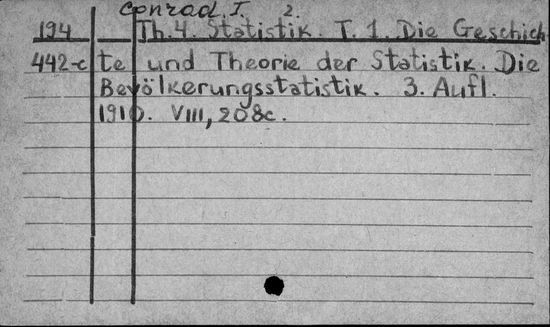 Conrad, I. 2.
194 Th. 4. Statistik. T. 1. Die Geschich
442-c te und Theorie der Statistik. Die
Bevölkerungsstatistik. 3. Aufl.
1910. VIII, 208c.